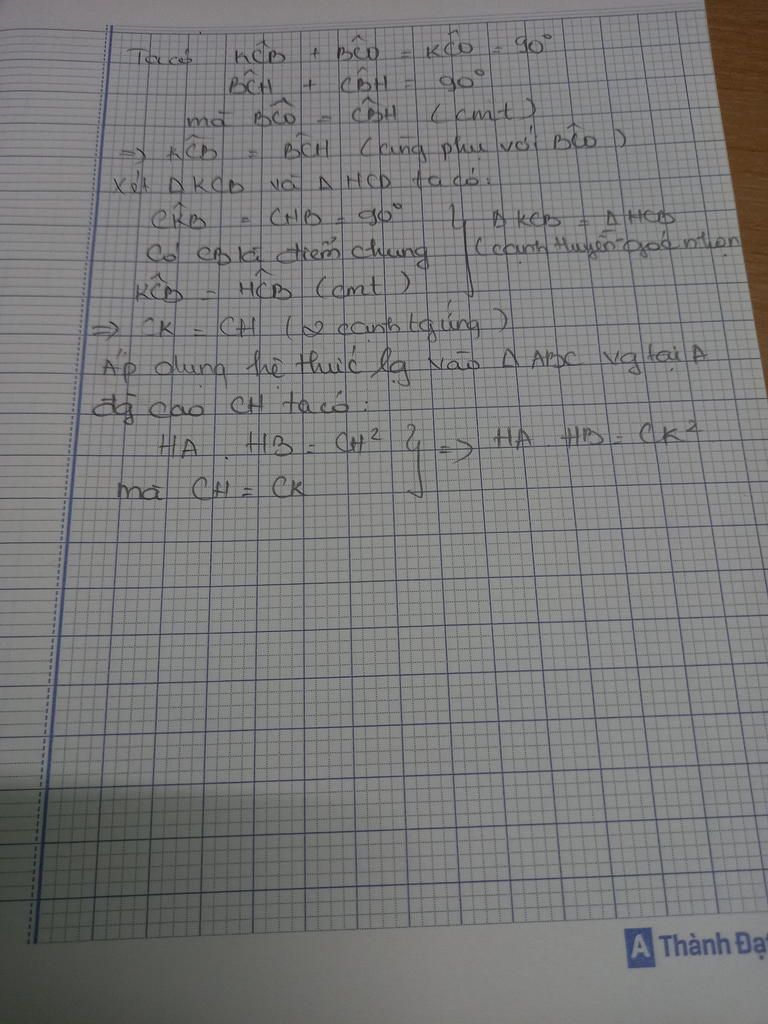 Ta có KĈB + BĈO = KĈO = 90°
BĈH + CB̂H = 90°
mà BĈO = CB̂H (cmt)
=> KĈB = BĈH (cùng phụ với BĈO)
Xét Δ KCB và Δ HCB ta có:
CK̂B = CĤB = 90°
Có CB là điểm chung
KĈB = HĈB (cmt)
} Δ KCB = Δ HCB
(cạnh huyền-góc nhọn
=> CK = CH (2 cạnh tg ứng)
Áp dụng hệ thức lg vào Δ ABC vg tại A
đg cao CH ta có:
HA . HB = CH² } => HA HB = CK²
mà CH = CK
A Thành Đạt